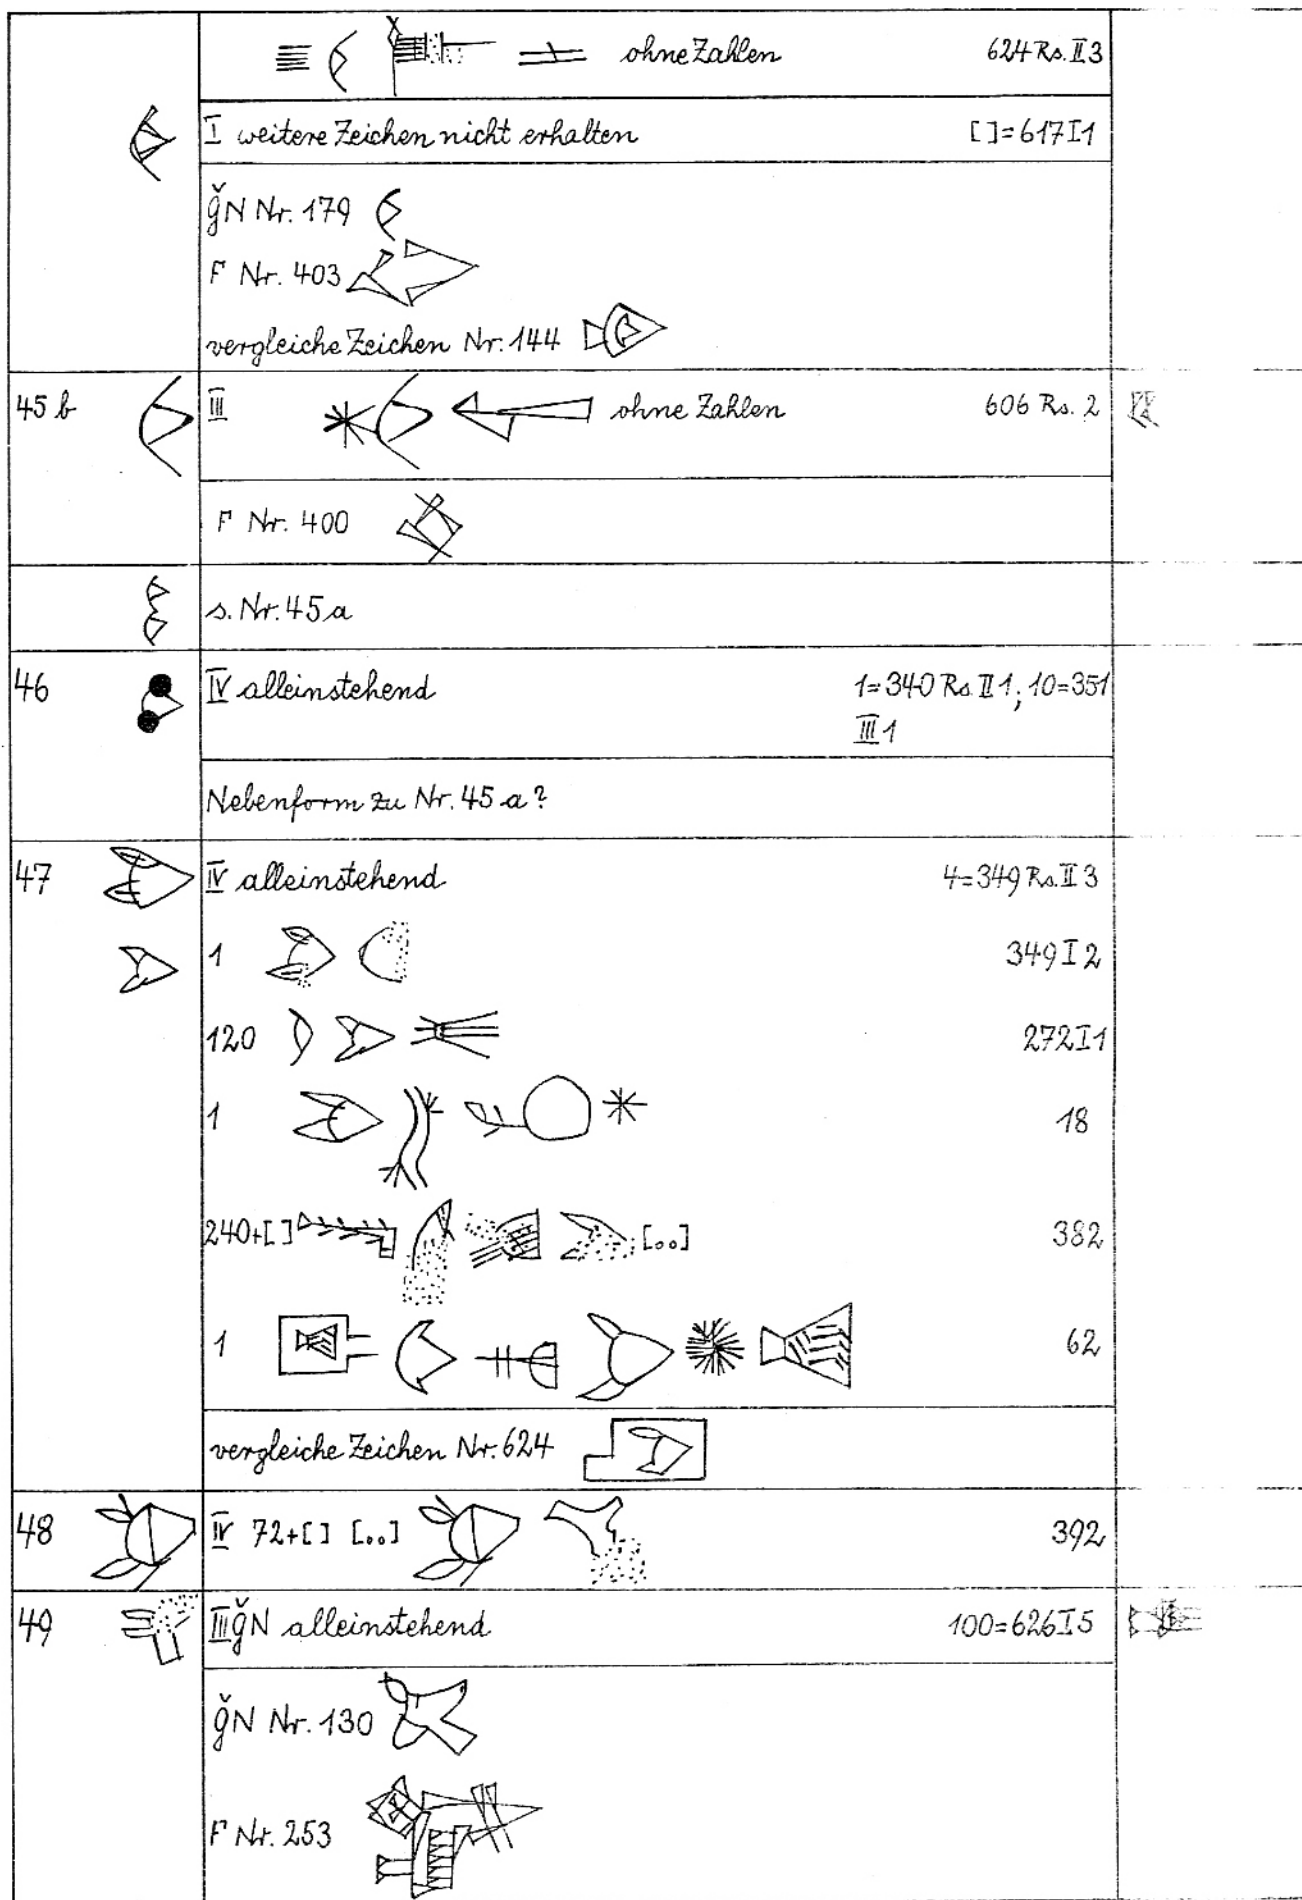 ohne Zahlen 624 Rs. II 3
I weitere Zeichen nicht erhalten [ ]=617 I 1
ǧN Nr. 179
F Nr. 403
vergleiche Zeichen Nr. 144
45 b III ohne Zahlen 606 Rs. 2
F Nr. 400
s. Nr. 45 a
46 IV alleinstehend 1=340 Rs. II 1; 10=351
III 1
Nebenform zu Nr. 45 a?
47 IV alleinstehend 4=349 Rs. II 3
1 349 I 2
120 272 I 1
1 18
240+[ ] [..] 382
1 62
vergleiche Zeichen Nr. 624
48 IV 72+[ ] [..] 392
49 III ǧN alleinstehend 100=626 I 5
ǧN Nr. 130
F Nr. 253